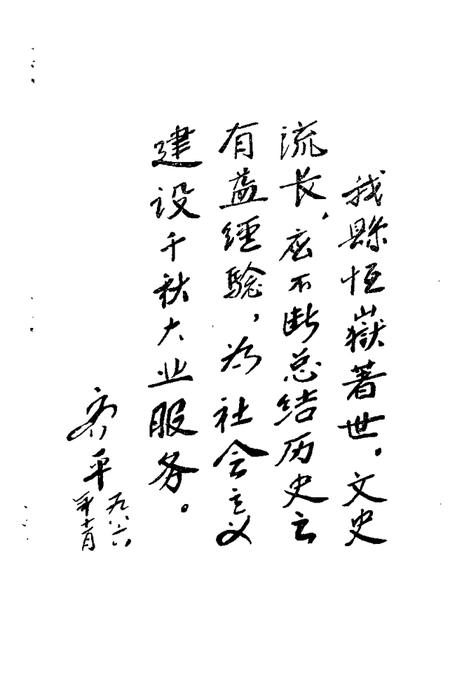 我縣恒嶽著世。文史
流长，应不断总结历史之
有益經驗，为社会主义
建设千秋大业服务。
齐平
一九八六
年十一月